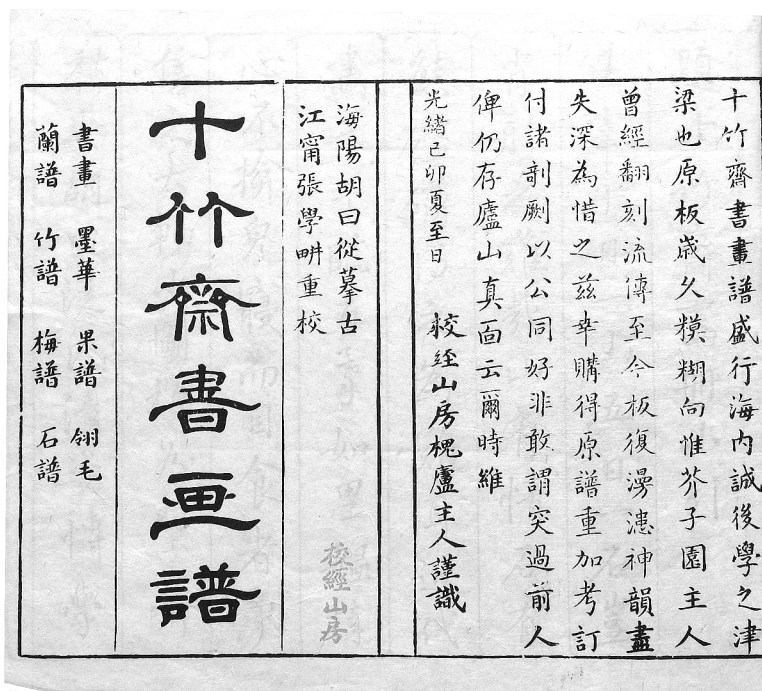 十竹齋書畫譜盛行海內誠後學之津
梁也原板歲久糢糊向惟芥子園主人
曾經翻刻流傳至今板復漫漶神韻盡
失深為惜之茲幸購得原譜重加考訂
付諸剞劂以公同好非敢謂突過前人
俾仍存廬山真面云爾時維
光緒己卯夏至日 校經山房槐廬主人謹識
海陽胡曰從摹古
江甯張學畊重校
校經山房
十竹齋書画譜
書畫 墨華 果譜 翎毛
蘭譜 竹譜 梅譜 石譜